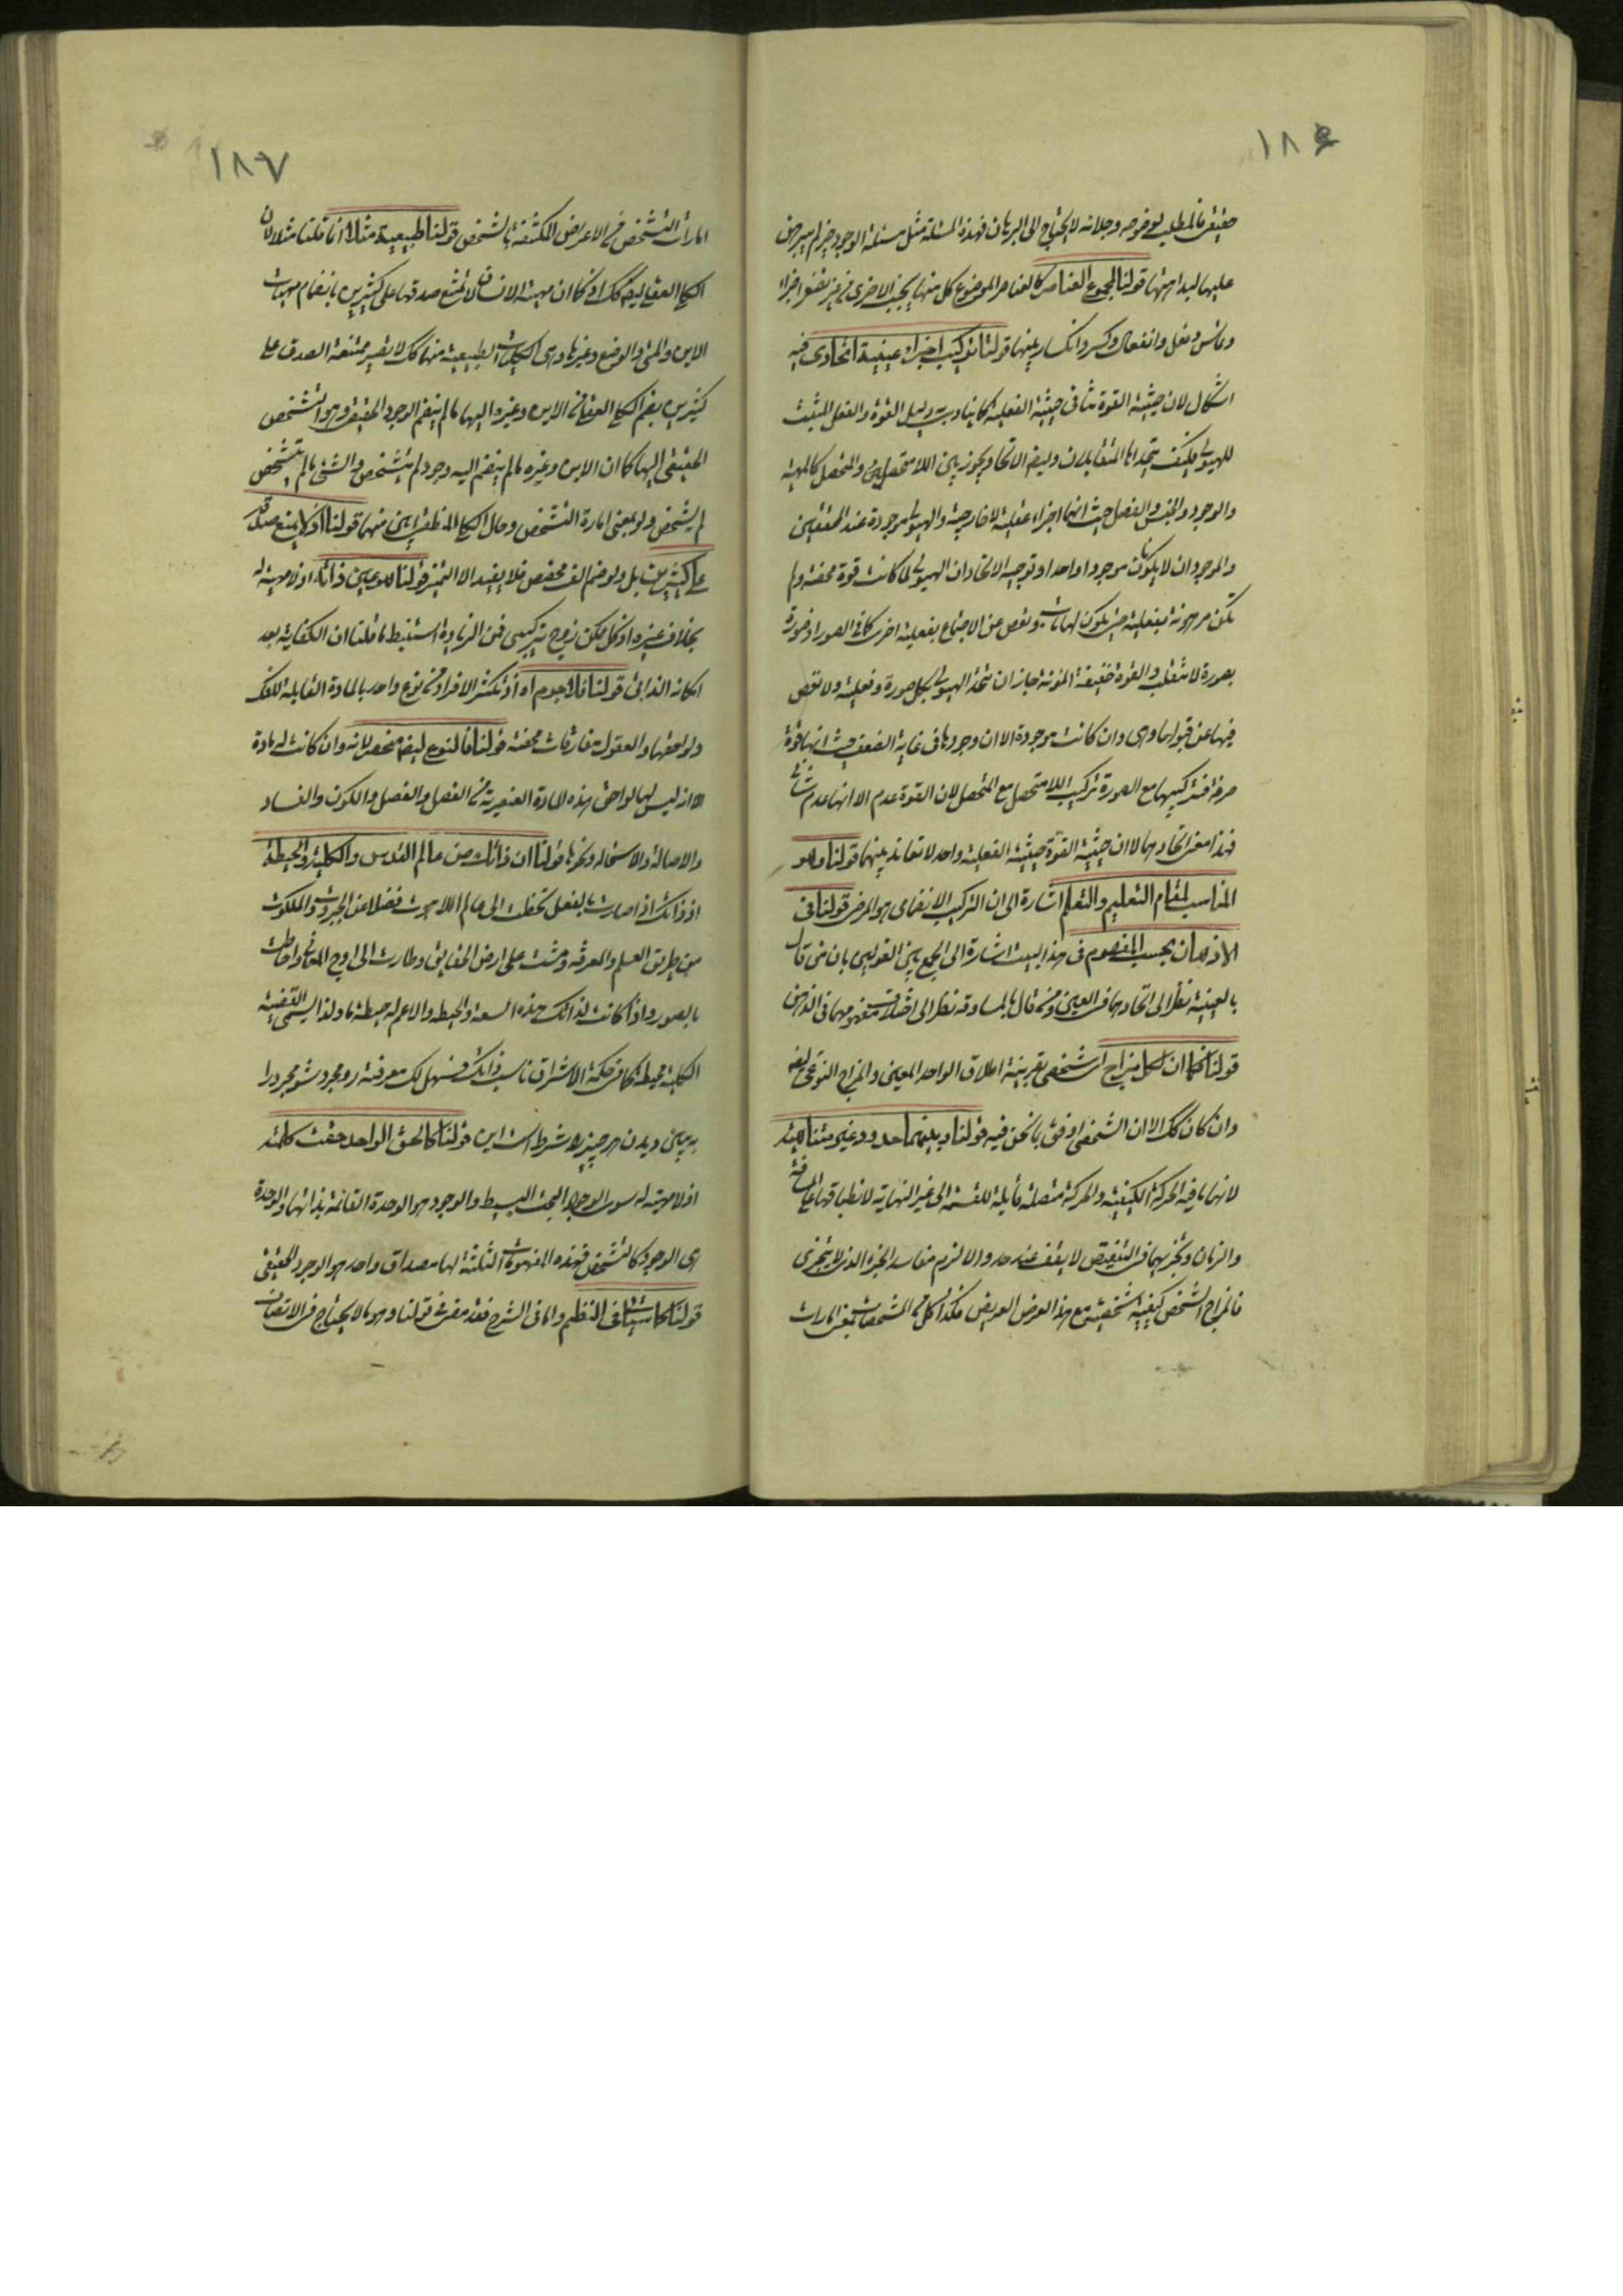 ١٨٦
حقيقي فالمطلب لوضوحه وجلائه لا يحتاج الى البرهان فهذه المسئلة مثل مسئلة الوجود خير لم يبرهن
عليها لبداهتها قولنا لمجموع العناصر كالعناصر الموضوع كل منها بجنب الاخرى في
وتماس وفعل وانفعال وكسر وانكسار بينها قولنا تركيب اجزاء عينية اتحادى فيه
اشكال لان حيثية القوة تنافى حيثية الفعلية كما ينادى به دليل القوة والفعل المثبت
للهيولى فكيف يتحد المتقابلان وايضا الاتحاد يجوز بين اللامتحصل والمتحصل كالمهية
والوجود والجنس والفصل حيث انهما اجزاء عقلية لا خارجية والهيولى موجودة عند المحققين
والموجودان لا يكونان موجودا واحدا وتوجيه الاتحاد ان الهيولى لما كانت قوة محضة ولم
تكن مرهونة بفعلية حتى يكون لها وتعص عن الاجتماع بفعلية اخرى كما في الصور اذ صورة
بصورة لا تنقلب والقوة خفيفة المؤنة جاز ان تتحد الهيولى بكل صورة وفعلية ولا تعصى
فيها عن قبولها وهى وان كانت موجودة الا ان وجودها في غاية الضعف حيث انها قوة
صرفة فتركيبها مع الصورة تركيب اللامتحصل مع المتحصل لان القوة عدم الا انها عدم شانى
فهذا معنى اتحادهما لا ان حيثية القوة حيثية الفعلية واحد لا تعاند بينهما قولنا وهو
المناسب لمقام التعليم والتعلم اشارة الى ان التركيب الانضمامى هو المرضى قولنا في
الاذهان بحسب المفهوم فى هذا البيت اشارة الى الجمع بين القولين بان من قال
بالعينية نظر الى اتحادهما في العين ومن قال بالمساوقة نظر الى اختلاف مفهومهما فى الذهن
قولنا كما ان لكل مزاج اى شخصى بقرينة اطلاق الواحد المعين والمزاج النوعى ايضا
وان كان كك الا ان الشخصى اوفق بما نحن فيه قولنا وبينهما حدود غير متناهية
لانها ما فيه الحركة الكيفية والحركة متصلة قابلة للقسمة الى غير النهاية لانطباقها على المسافة
والزمان وتجزيهما في التنقيص لا يقف عند حد والا لزم مفاسد الجزء الذى لا يتجزى
فالمزاج الشخصى كيفية شخصية مع هذا العرض العريض فكذا الحال في المشخصات بمعنى امارات
١٨٧
امارات التشخص في الاعراض المكتنفة بالشخص قولنا طبيعية مثلا انما قلنا مثلا لان
الكلى العقلى ايضا كك اذ كما ان مهية الانسان لا تمتنع صدقها على كثيرين بانضمام مهيات
الاين والمتى والوضع وغيرها وهى الكليات الطبيعية منها كك لا يصير ممتنعة الصدق على
كثيرين بضم الكلى العقلى من الاين وغيره اليها ما لم ينضم الوجود الحقيقى وهو التشخص
الحقيقى اليها كما ان الاين وغيره ما لم ينضم اليه وجود لم يتشخص والشئ ما لم يتشخص
لم يشخص ولو بمعنى امارة التشخص وحال الكلى المنطقى ايضا منهما قولنا اذ لا يمنع صدقه
على كثيرين بل ولو ضم الف مخصص فلا يفيد الا التميز قولنا هو عين ذاته اذ لا مهية له
بخلاف غيره اذ كل ممكن زوج تركيبى فمن الزيادة استنبط ما قلنا ان الكفاية بعد
امكانه الذاتى قولنا فلا جوم اه اذ تكثر الافراد من نوع واحد بالمادة القابلة للفك
ولواحقها والعقول مفارقات محضة قولنا فالنوع ايضا منحصر لانه وان كانت له مادة
الا انه ليس لها لواحق هذه المادة العنصرية من الفصل والفصل والكون والفساد
والاصالة والاستحالة ونحوها قولنا ان ذاتك من عالم القدس والكلية والحيطة
اذ ذاتك اذا صارت بالفعل تخطت الى عالم اللاهوت فضلا عن الجبروت والملكوت
من طريق العلم والمعرفة ومشت على ارض الحقايق وطارت الى اوج المعانى واحاطت
بالصور واذا كانت لذاتك هذه السعة والحيطة والاعم له حيطة ما ولذا يسمى القضية
الكلية محيطة كما في حكمة الاشراق ناسب ذاتك فسهل لك معرفته رو مجرد شو مجرد را
به بين ديدن هر چيز را شرط است اين قولنا كالحق الواحد حقت كلمته
اذ لا مهية له سوى الوجود البحت البسيط والوجود هو الوحدة القائمة بذاتها والوحدة
هى الوجود كالتشخص فهذه المفهومات الثلثة لها مصداق واحد هو الوجود الحقيقى
قولنا كما سيتا فى النظم واما فى الشرح فقد مضى قولنا وهو ما لا يحتاج في الاتصاف